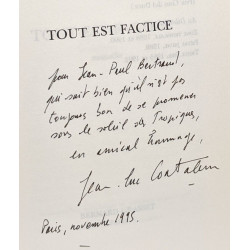 TOUT EST FACTICE
pour Jean-Paul Bertrand,
qui sait bien qu'il n'est pas
toujours bon de se promener
sous le soleil des Tropiques,
en amical hommage,
Jean-Luc Coatalem
Paris, novembre 1995.